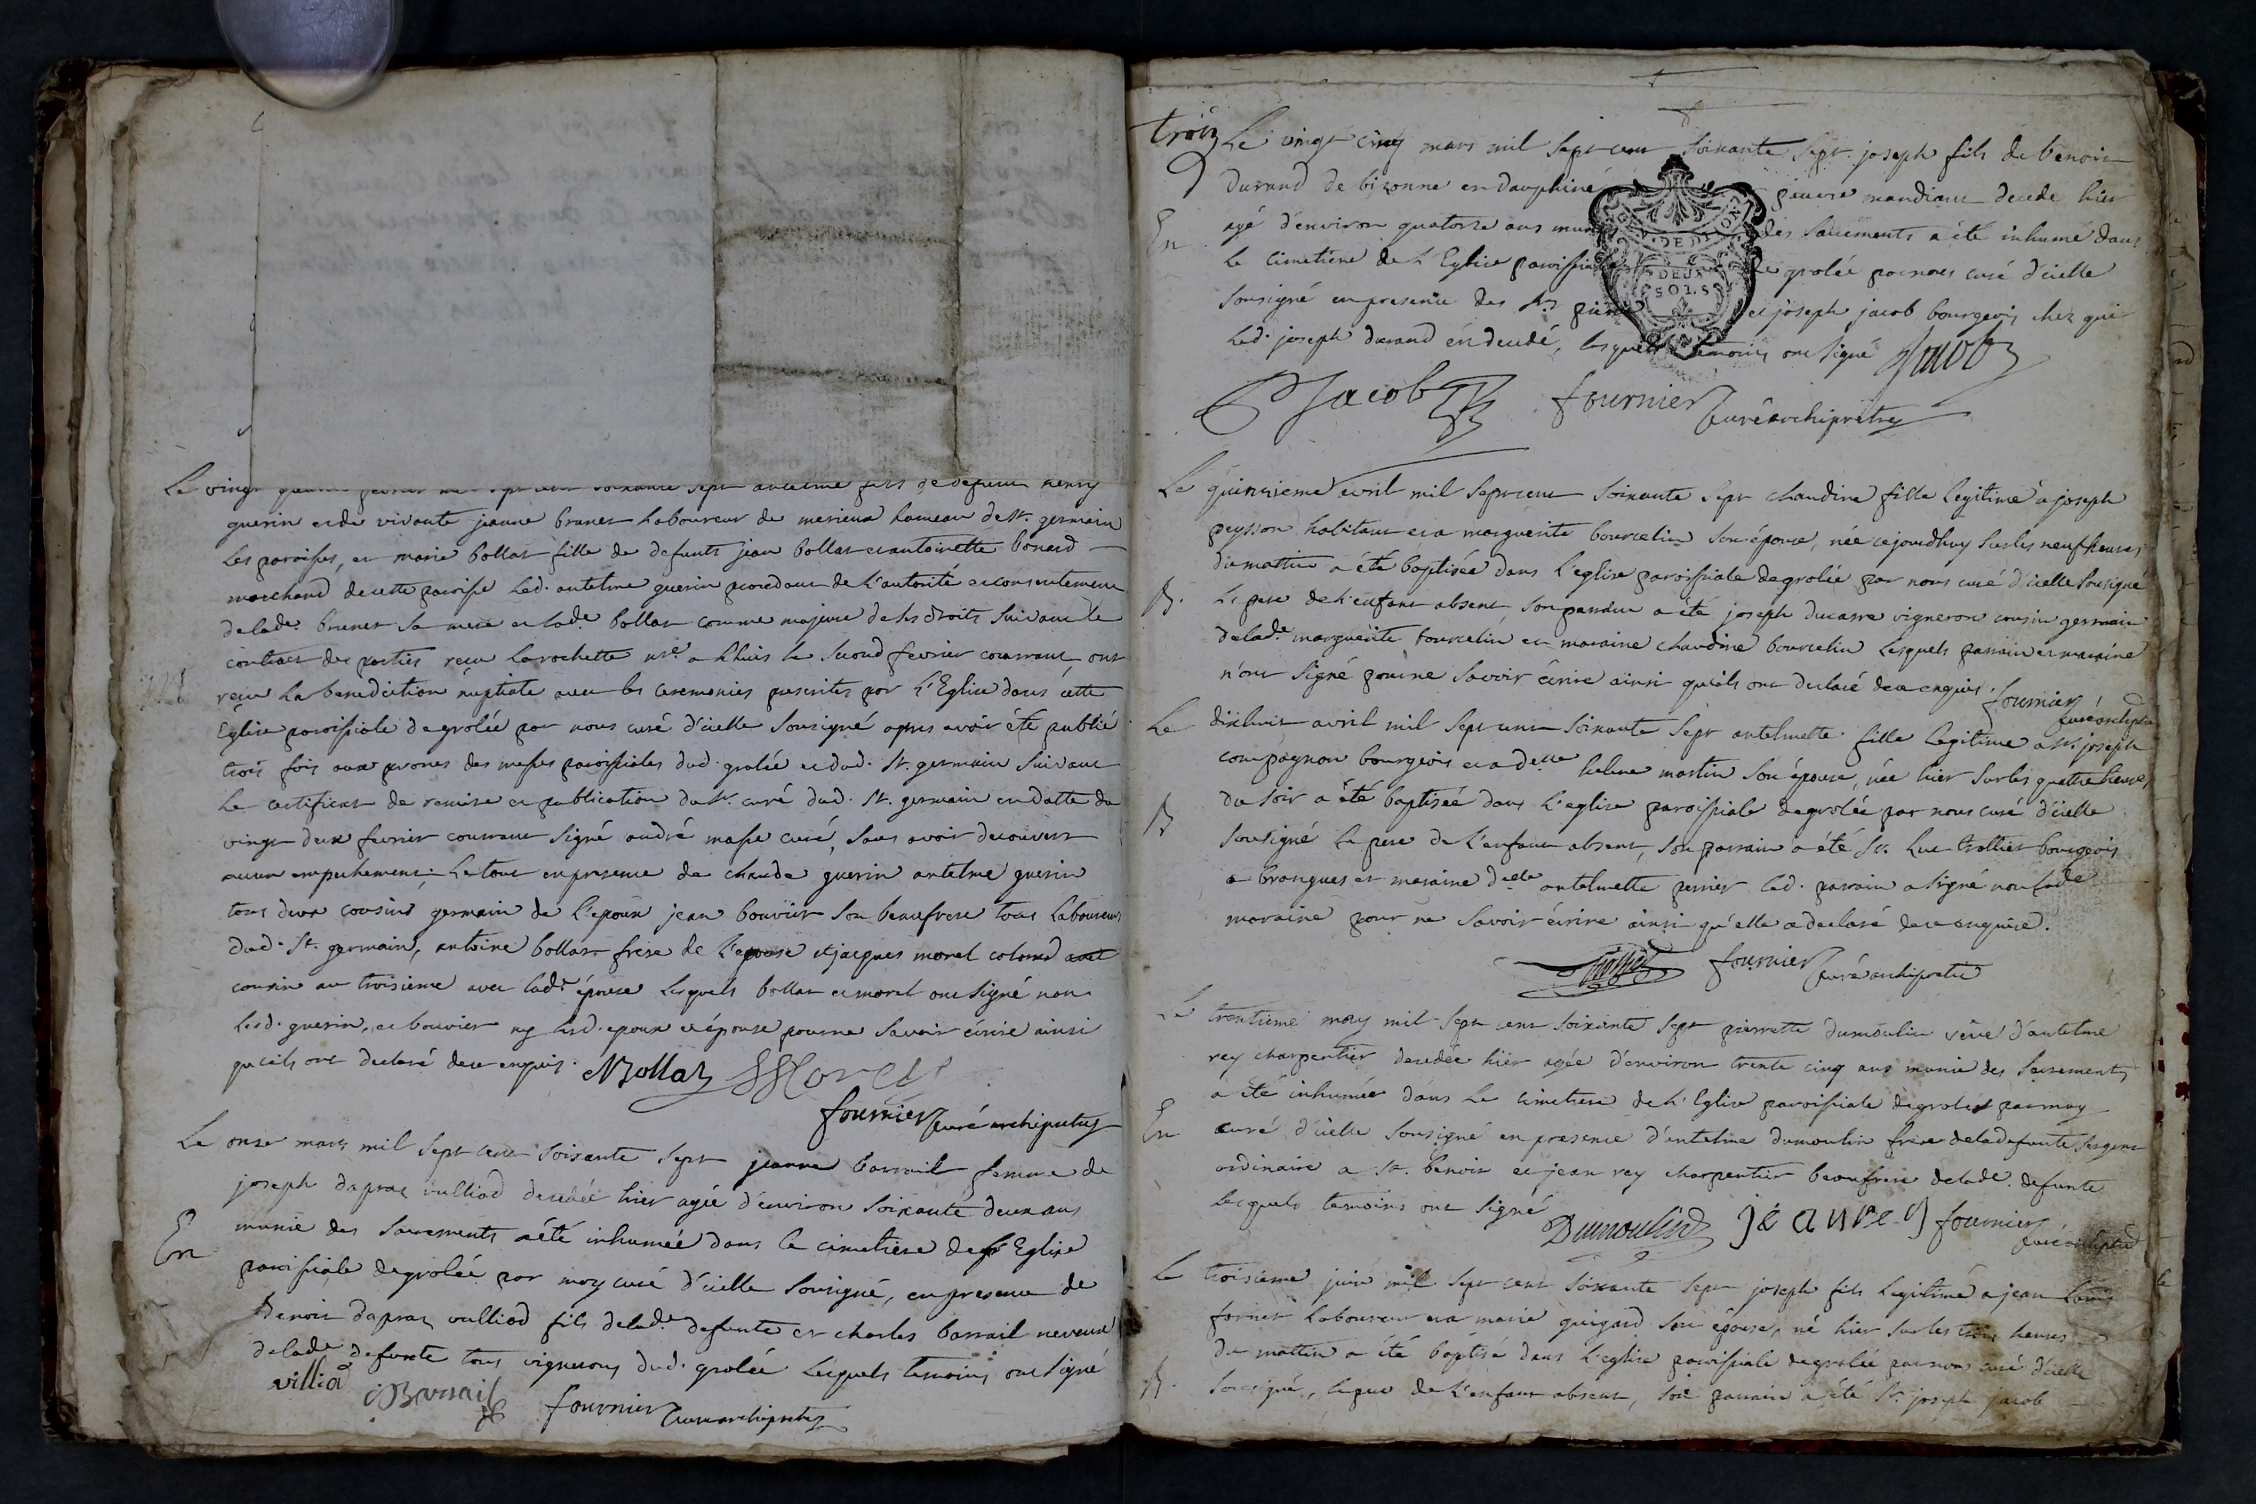 Le vingt fevrier soixante sept antelme fils de defunt henry
guerin et de vivante jeanne brunet laboureur de merieux hameau de st. germain
les paroisses, et marie bollat fille de defunts jean bollat et antoinette bonard
marchand de cette paroisse led. antelme guerin procedant de l'autorité et consentement
de lade. brunet sa mere et lade. bollat comme majeure de ses droits suivant le
contract des parties reçu larochette nre. a lhuis le second fevrier courrant, ont
reçu la benediction nuptiale avec les ceremonies prescrites par l'Eglise dans cette
Eglise paroissiale de grolée par nous curé d'icelle sousigné apres avoir été publié
trois fois aux prones des messes paroissiales dud. grolée et dud. st. germain suivant
le certificat de remise et publication du sr. curé dud. st. germain en datte du
vingt deux fevrier courrant signé andré masse curé, sans avoir decouvert
aucun empechement; le tout en presence de claude guerin antelme guerin
tous deux cousins germain de l'epoux jean bouvier son beaufrere tous laboureurs
dud. st. germain, antoine bollat frere de l'epouse et jacques morel
cousin au troisieme avec lade. épouse lesquels bollat et morel ont signé non
lesd. guerin, et bouvier ny lesd. epoux et épouse pour ne savoir écrire ainsi
qu'ils ont declaré de ce enquis. Bollat Morel
fournier curé archipretre
Le onze mars mil sept cent soixante sept jeanne barrail femme de
joseph dapraz vulliod decedée hier agée d'environ soixante deux ans
En munie des sacrements a été inhumée dans le cimetiere de l'Eglise
paroissiale de grolée par moy curé d'icelle sousigné, en presence de
Benoit dapraz vulliod fils de lade. defunte et charles barrail neveux
de lade. defunte tous vignerons dud. grolée lesquels temoins ont signé
villiod Barrail fournier curé archipretre
trois Le vingt cinq mars mil sept cent soixante sept joseph fils de benoit
durand de bizonne en dauphiné pauvre mandiant decedé hier
En agé d'environ quatorze ans muni des sacrements a été inhumé dans
le cimetiere de l'Eglise paroissiale de grolée par nous curé d'icelle
sousigné en presence des srs. pierre et joseph jacob bourgeois chez qui
led. joseph durand en decedé, lesquels temoins ont signé Jacob
DE DIJON
DEUX
SOLS
Jacob fournier curé archipretre
Le quinzieme avril mil sept cent soixante sept claudine fille legitime a joseph
peysson habitant et a marguerite bourcelin son épouse, née cejourdhuy sur les neuf heures
du mattin a été baptisée dans l'eglise paroissiale de grolée par nous curé d'icelle sousigné
B. le pere de l'enfant absent son parrain a été joseph ducarre vigneron cousin germain
de lade. marguerite bourcelin et maraine claudine bourcelin lesquels parrain et maraine
n'ont signé pour ne savoir écrire ainsi qu'ils ont declaré de ce enquis. fournier
curé archiptre
Le dixhuit avril mil sept cent soixante sept antelmette fille legitime a sr. joseph
compagnon bourgeois et a delle helene martin son épouse, née hier sur les quattre heures
B du soir a été baptisée dans l'eglise paroissiale de grolée par nous curé d'icelle
sousigné le pere de l'enfant absent, son parrain a été sr. luc trollier bourgeois
a brangues et maraine delle antelmette perrier led. parrain a signé non lade
maraine pour ne savoir écrire ainsi qu'elle a declaré de ce enquise.
trollier fournier curé archipretre
Le trentieme may mil sept cent soixante sept pierrette dumoulin veuve d'antelme
rey charpentier decedée hier agée d'environ trente cinq ans munie des sacrements
a été inhumée dans le cimetiere de l'Eglise paroissiale de grolée par moy
En curé d'icelle sousigné en presence d'antelme dumoulin frere de la defunte sergent
ordinaire a st. benoit et jean rey charpentier beaufrere de lade. defunte
lesquels temoins ont signé
Dumoulin jean rey fournier
curé archiptre
Le troisieme juin mil sept cent soixante sept joseph fils legitime a jean louis
fornier laboureur et a marie guigard son épouse, né hier sur les trois heures
du mattin a été baptisé dans l'eglise paroissiale de grolée par nous curé d'icelle
B. sousigné, le pere de l'enfant absent, son parrain a été sr. joseph jacob